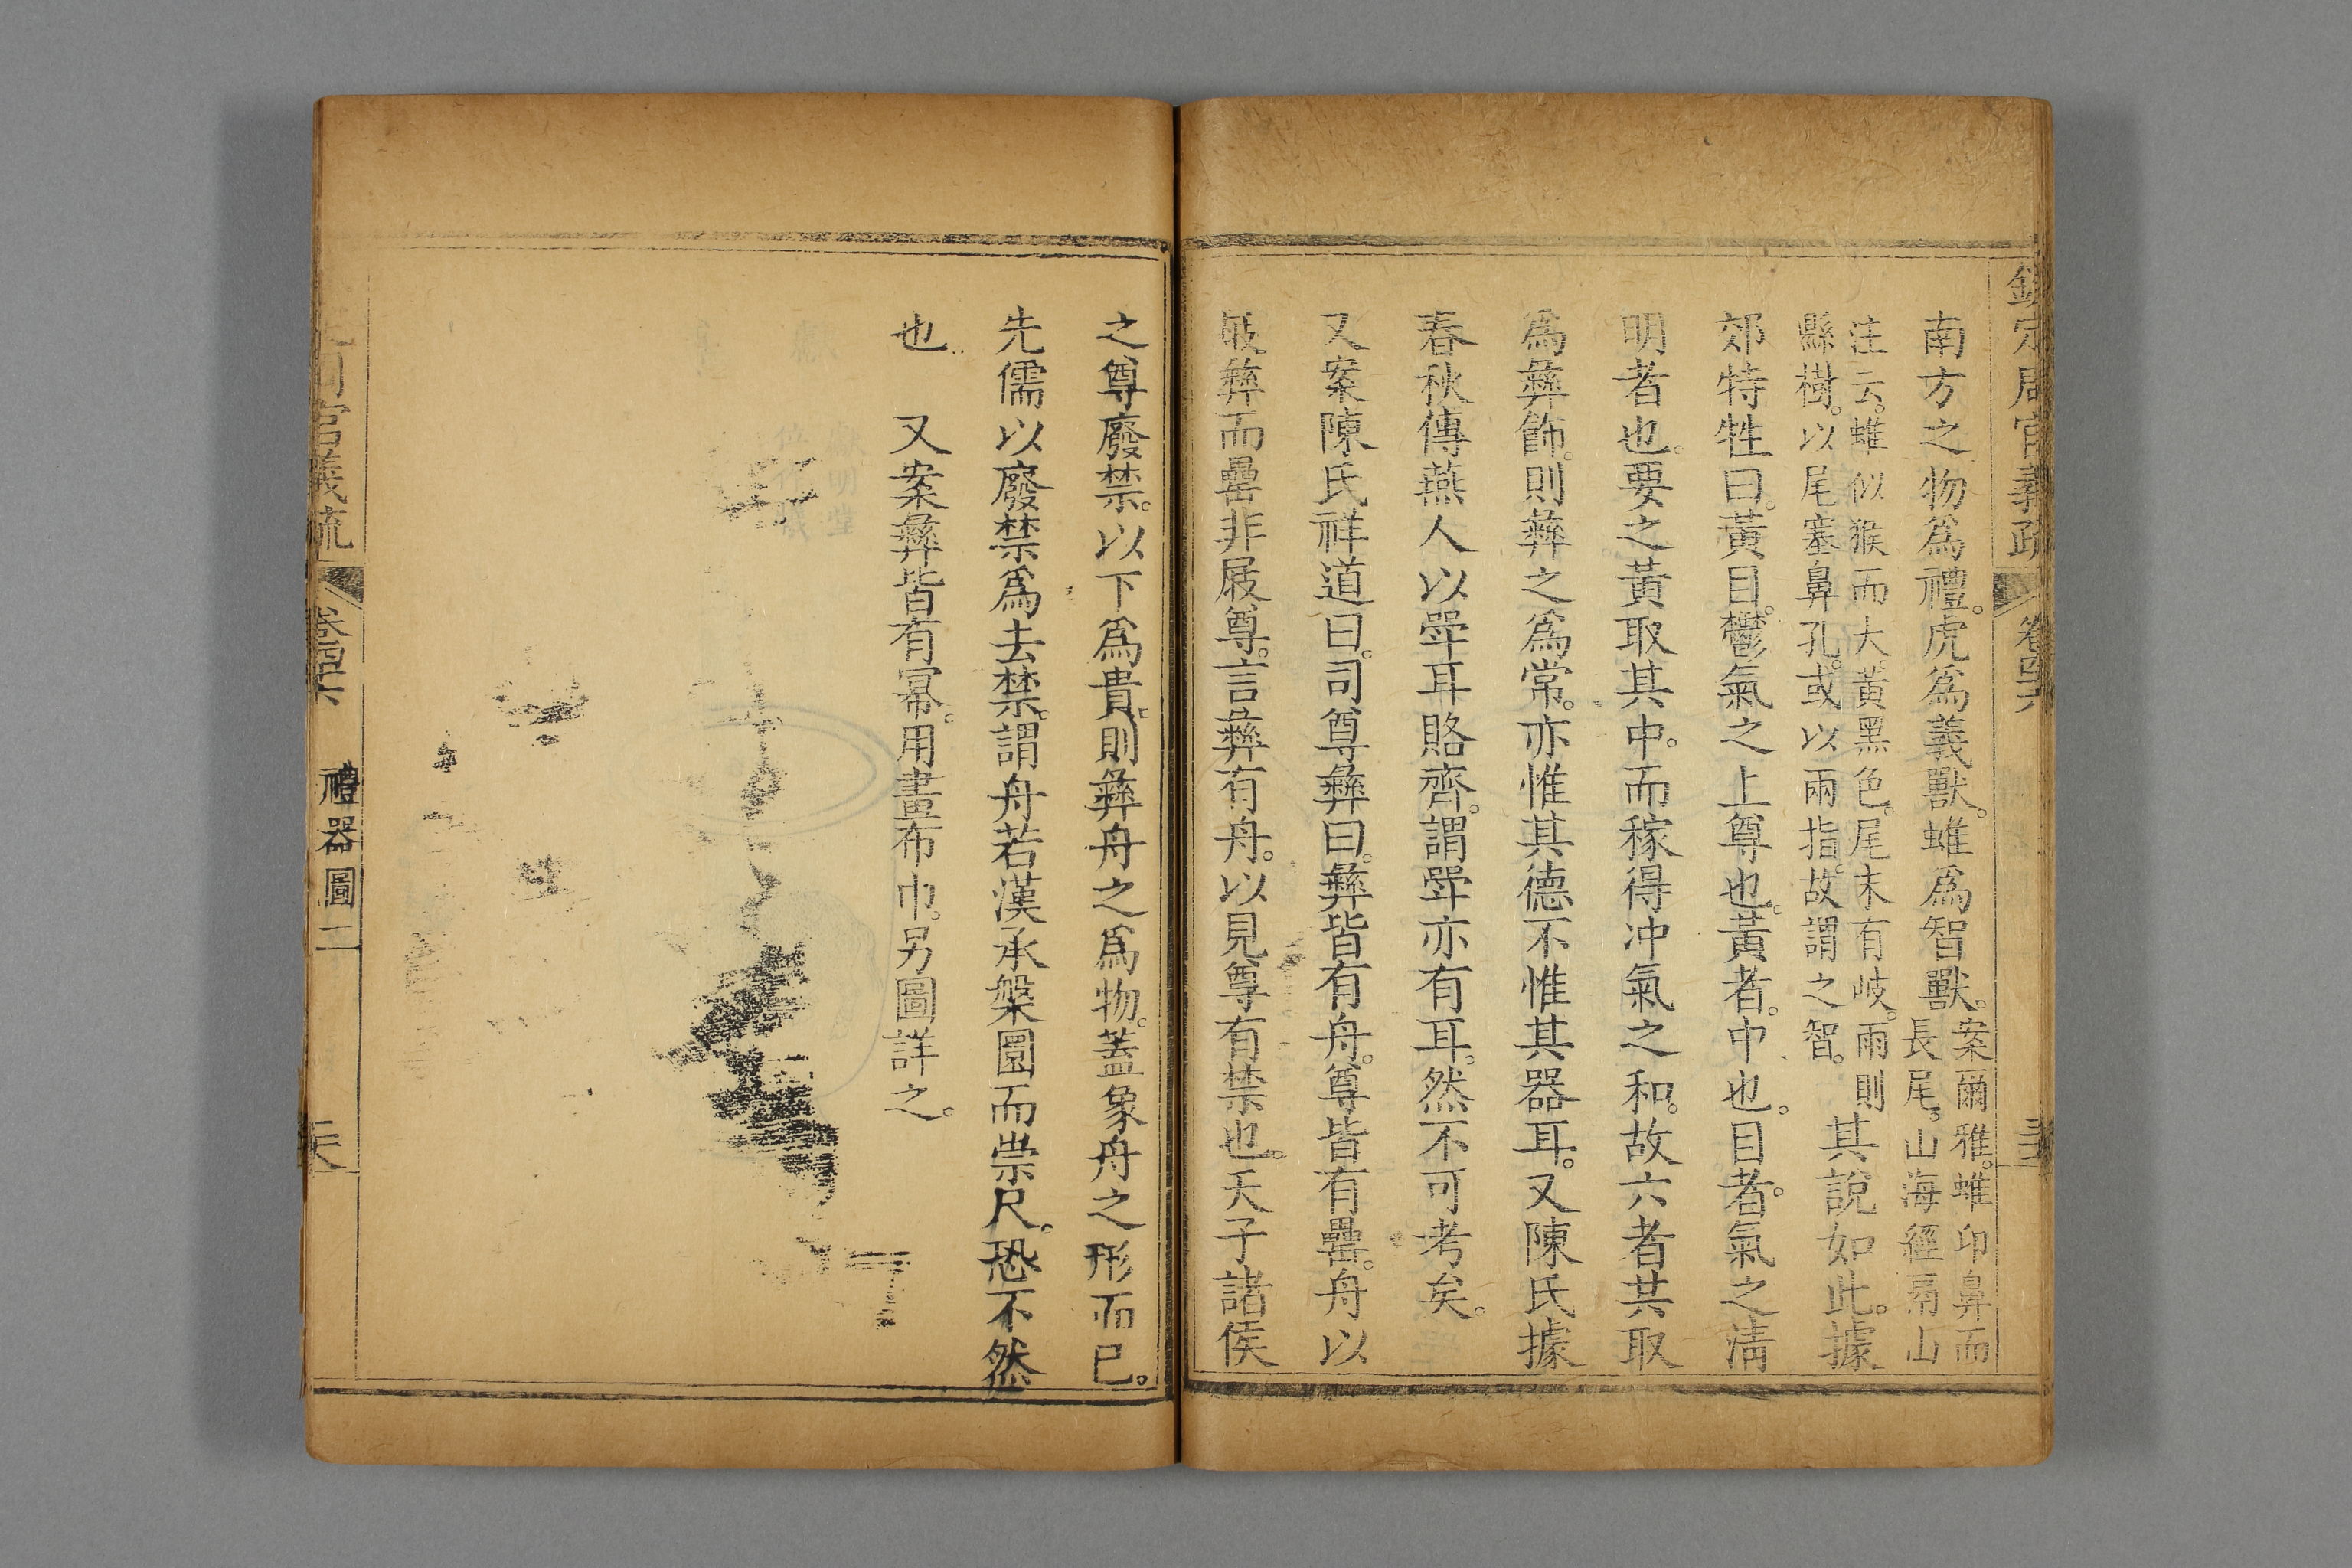 欽定周官義疏 卷四十六
南方之物爲禮。虎爲義獸。蜼爲智獸。案爾雅。蜼卬鼻而
長尾。山海經鬲山
注云。蜼似猴而大。黃黑色。尾末有岐。雨則
縣樹。以尾塞鼻孔。或以兩指。故謂之智。其說如此。據
郊特牲曰。黃目。鬱氣之上尊也。黃者。中也。目者。氣之淸
明者也。要之黃取其中。而稼得沖氣之和。故六者共取
爲彝飾。則彝之爲常。亦惟其德不惟其器耳。又陳氏據
春秋傳燕人以斝耳賂齊。謂斝亦有耳。然不可考矣。
又案陳氏祥道曰。司尊彝曰。彝皆有舟。尊皆有罍。舟以
㡳彝而罍非㞕尊。言彝有舟。以見尊有禁也。天子諸侯
之尊廢禁。以下爲貴。則彝舟之爲物。蓋象舟之形而已。
先儒以廢禁爲去禁。謂舟若漢承槃圜而崇尺。恐不然
也 又案彝皆有冪。用畫布巾。另圖詳之。
周官義疏 卷四十六 禮器圖二